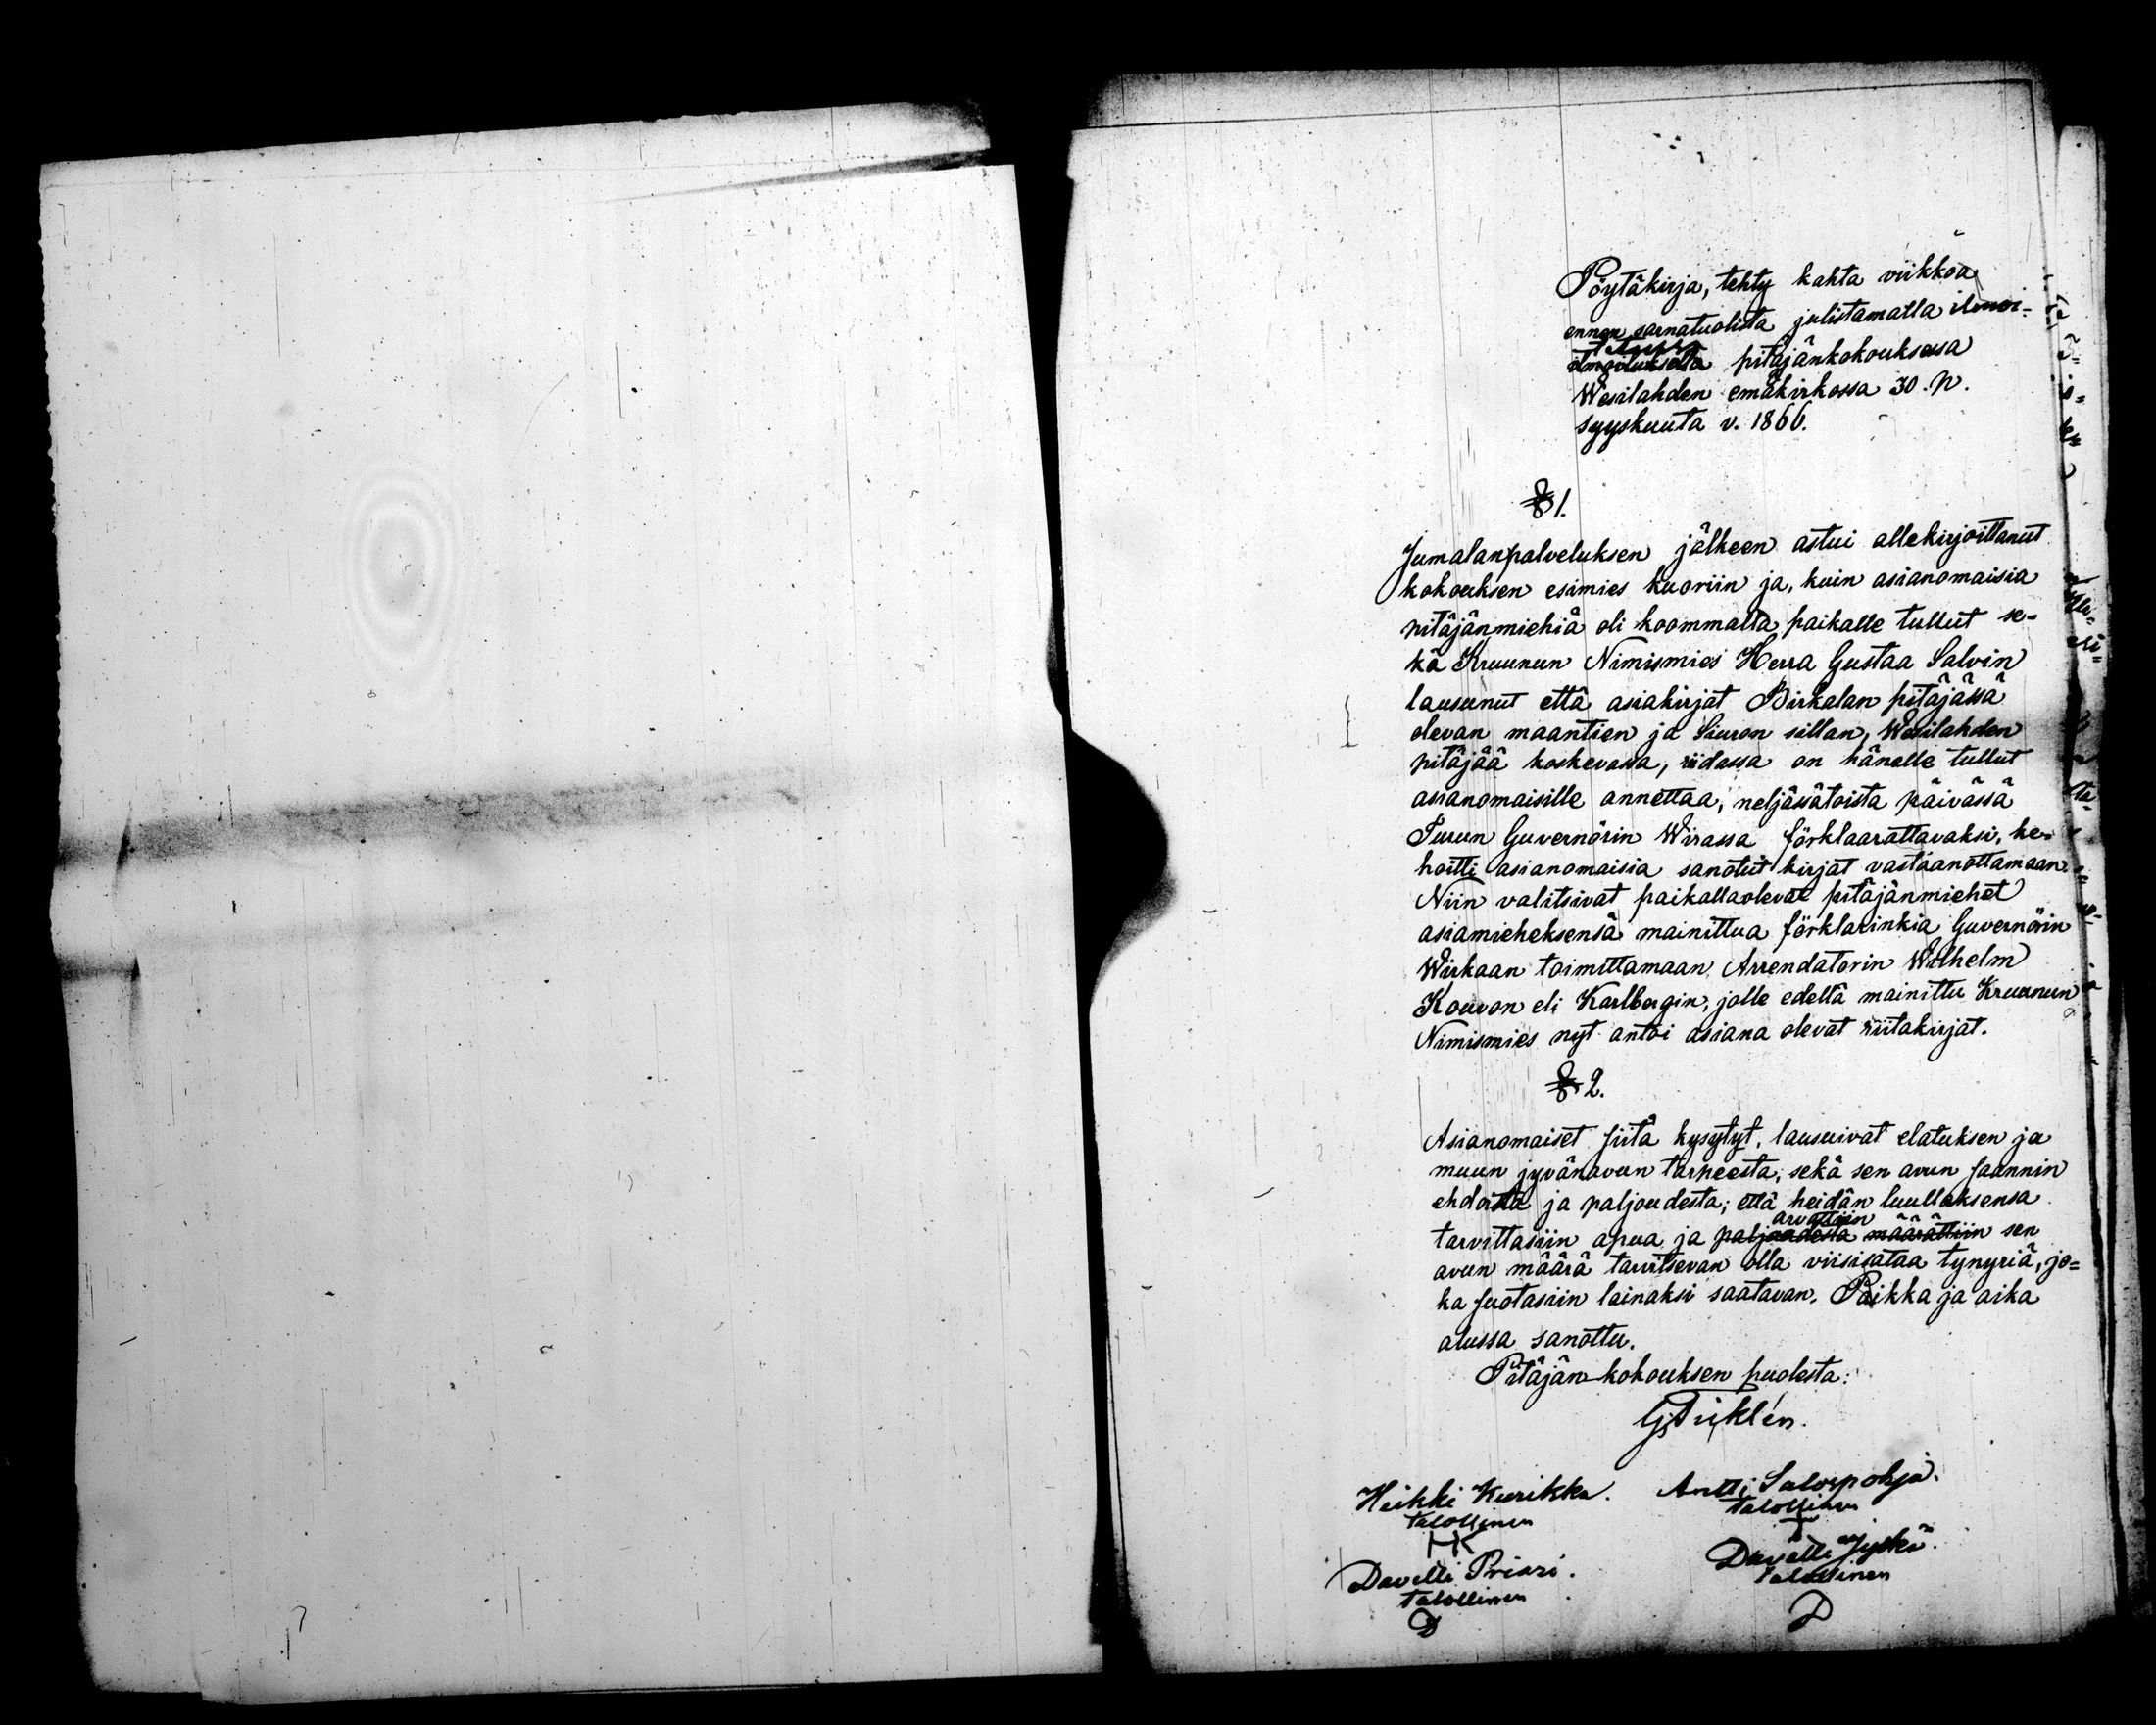 Pöytäkirja, tehty kahta viikkoa
ennen sarnatuolista julistamalla ilmoi-
ilmoituksella pitäjänkokouksessa
Wesilahden emäkirkossa 30. p.
syyskuuta v. 1866.
§ 1.
Jumalanpalveluksen jälkeen astui allekirjoittanut
kokouksen esimies kuoriin ja, kuin asianomaisia
pitäjänmiehiä oli koommalta paikalle tullut se-
kä Kruunun Nimismies Herra Gustaa Salvin
lausunut että asiakirjat Birkalan pitäjässä
olevan maantien ja Siuron sillan, Wesilahden
pitäjää koskevassa, riidassa on hänelle tullut
asianomaisille annettaa, neljässätoista päivässä
Turun Guvernörin Wirassa förklaarattavaksi, ke-
hoitti asianomaisia sanotut kirjat vastaanottamaan.
Niin valitsivat paikallaolevat pitäjänmiehet
asiamieheksensä mainittua förklarinkia Guvernörin
Wirkaan toimittamaan Arrendatorin Wilhelm
Kouvon eli Karlbergin, jolle edellä mainittu Kruunun
Nimismies nyt antoi asiana olevat riitakirjat.
§ 2.
Asianomaiset siitä kysytyt, lausuivat elatuksen ja
muun jyvänavun tarpeesta, sekä sen avun saannin
ehdoista ja paljoudesta; että heidän luullaksensa
arvattiin
tarvittasiin apua ja paljoudesta määrättiin sen
avun määrä tarvitsevan olla viisisataa tynyriä, jo-
ka suotasiin lainaksi saatavan. Paikka ja aika
alussa sanottu.
Pitäjän kokouksen puolesta:
Heikki Kurikka. Antti Salvepohja.
talollinen talollinen
HK
Davetti Priari. Davetti Jyskä.
talollinen talollinen
D D